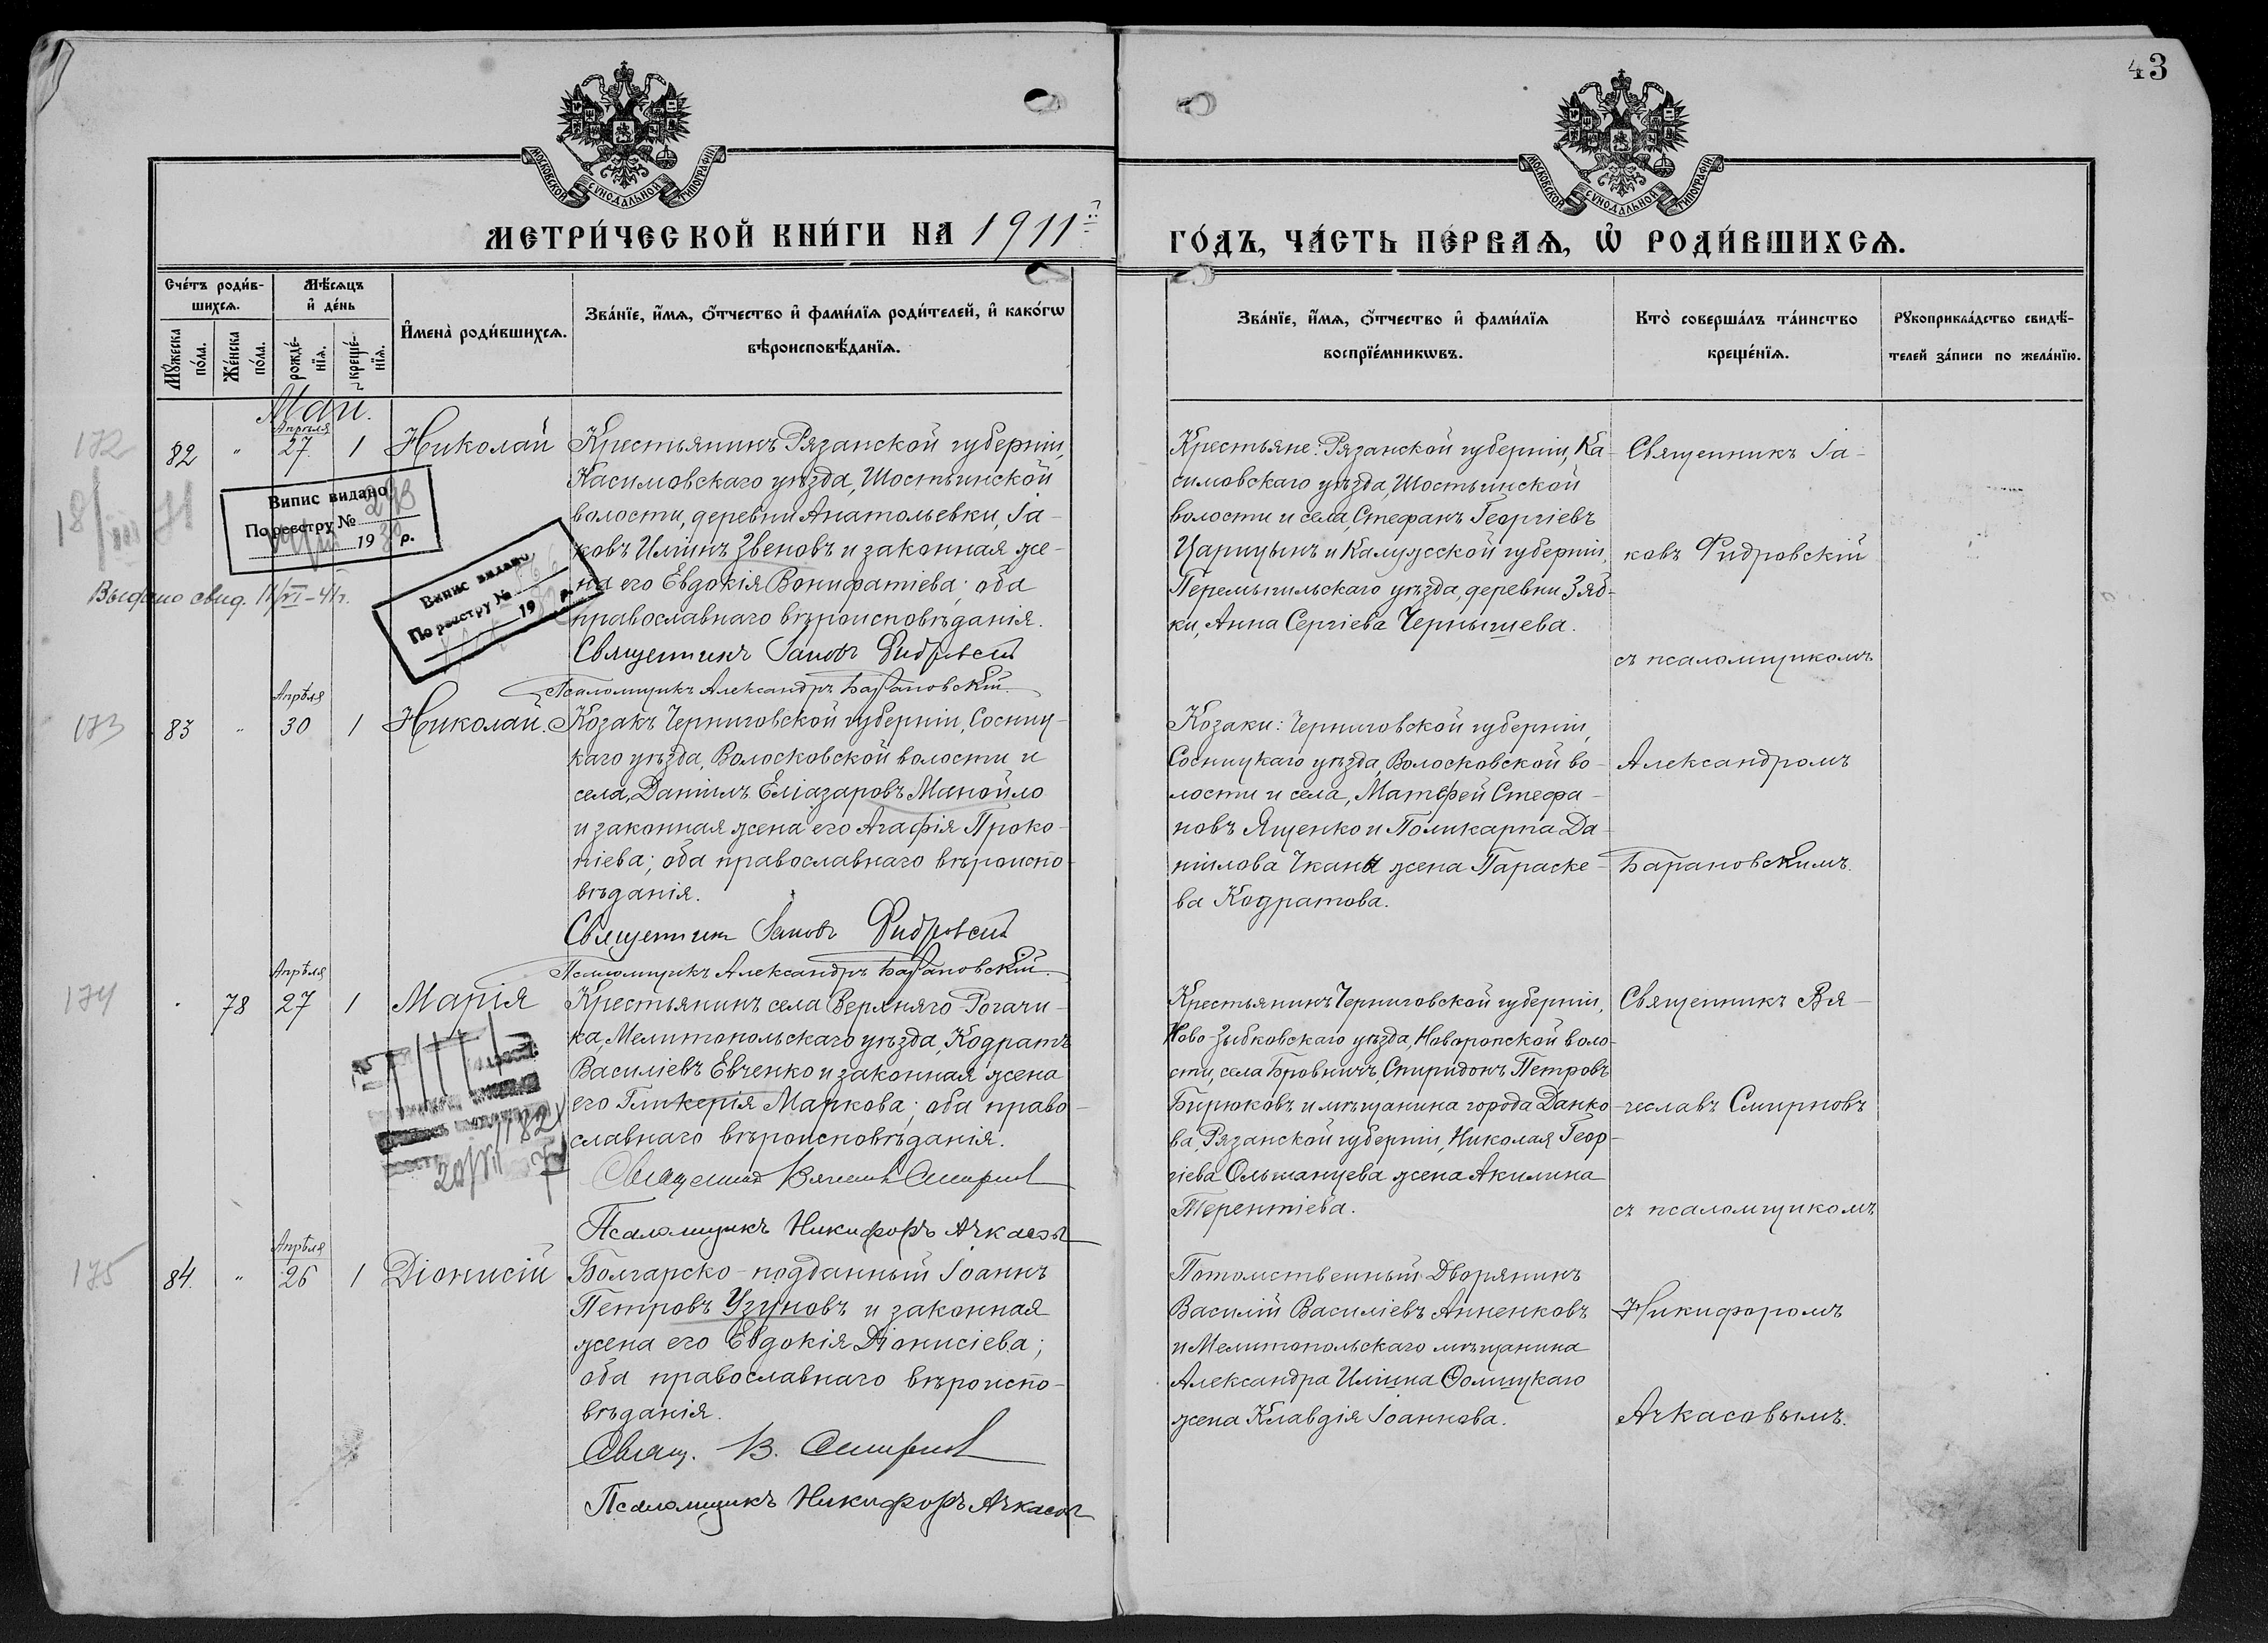 43
МОСКОВСКОЙ СѴНОДАЛЬНОЙ ТИПОГРАФІИ
МОСКОВСКОЙ СѴНОДАЛЬНОЙ ТИПОГРАФІИ
МЕТРИ́ЧЕСКОЙ КНИ́ГИ НА 1911й
ГО́ДЪ, ЧА́СТЬ ПЕ́РВАѦ, Ѽ РОДИ́ВШИХСѦ.
Сче́тъ роди́в-
шихсѧ.
Мꙋ́жеска
по́ла.
Же́нска
по́ла.
Мѣ́сѧцъ
и҆ де́нь
рожде́-
нїѧ.
креще́-
нїѧ.
И҆мена̀ роди́вшихсѧ.
Зва́нїе, и҆́мѧ, ѻ҆́тчество и҆ фами́лїѧ роди́телей, и҆ како́гѡ
вѣроисповѣ́данїѧ.
Зва́нїе, и҆́мѧ, ѻ҆́тчество и҆ фами́лїѧ
воспрїе́мникѡвъ.
Кто̀ соверша́лъ та́инство
креще́нїѧ.
Рꙋкоприкла́дство свидѣ́-
телей за́писи по жела́нїю.
Май.
172
82
"
Апрѣля
27.
1
Николай
Крестьянинъ Рязанской губерніи,
Касимовскаго уѣзда, Шостьинской
волости, деревни Анатольевки, Іа-
ковъ Иліинъ Звеновъ и законная же-
на его Евдокія Вонифатіева; оба
православнаго вѣроисповѣданія.
Священникъ Іаковъ Фидровскій
Псаломщикъ Александръ Барановскій.
Випис видано
По реєстру № 293
19 39 р.
Выдано свид. 11/VI-41г.
Випис видано
По реєстру №
19 р.
Крестьяне: Рязанской губерніи, Ка-
симовскаго уѣзда, Шостьинской
волости и села, Стефанъ Георгіевъ
Царицынъ и Калужсской губерніи,
Перемышльскаго уѣзда, деревни Зяб-
ки, Анна Сергіева Чернышева.
Священникъ Іа-
ковъ Фидровскій
съ псаломщикомъ
Александромъ
Барановскимъ.
173
83
"
Апрѣля
30
1
Николай.
Козакъ Черниговской губерніи, Сосниц-
каго уѣзда, Волосковской волости и
села, Даніилъ Еліазаровъ Манойло
и законная жена его Агафія Проко-
піева; оба православнаго вѣроиспо-
вѣданія.
Священникъ Іаковъ Фидровскій
Псаломщикъ Александръ Барановскій.
Козаки: Черниговской губерніи,
Сосницкаго уѣзда, Волосковской во-
лости и села, Матѳей Стефа-
новъ Ященко и Поликарпа Да-
ніилова Чкана жена Параске-
ва Кодратова.
174
78
Апрѣля
27
1
Марія
Крестьянинъ села Верхняго Рогачи-
ка, Мелитопольскаго уѣзда, Кодратъ
Василіевъ Евченко и законная жена
его Гликерія Маркова; оба право-
славнаго вѣроисповѣданія.
Священникъ Вячеславъ Смирновъ
Псаломщикъ Никифоръ Ачкасовъ
Крестьянинъ Черниговской губерніи,
Ново-Зыбковскаго уѣзда, Новоропской воло-
сти, села Бровничъ, Спиридонъ Петровъ
Бирюковъ и мѣщанина города Данко-
ва, Рязанской губерніи, Николая Геор-
гіева Ольшанцева жена Акилина
Терентіева.
Священникъ Вя-
чеславъ Смирновъ
съ псаломщикомъ
Никифоромъ
Ачкасовымъ.
175
84.
"
Апрѣля
26
1
Діонисій
Болгарско-подданный Іоаннъ
Петровъ Узуновъ и законная
жена его Евдокія Діонисіева;
оба православнаго вѣроиспо-
вѣданія.
Свящ. В. Смирновъ
Псаломщикъ Никифоръ Ачкасовъ
Потомственный Дворянинъ
Василій Василіевъ Анненковъ
и Мелитопольскаго мѣщанина
Александра Иліина Ѳомицкаго
жена Клавдія Іоаннова.